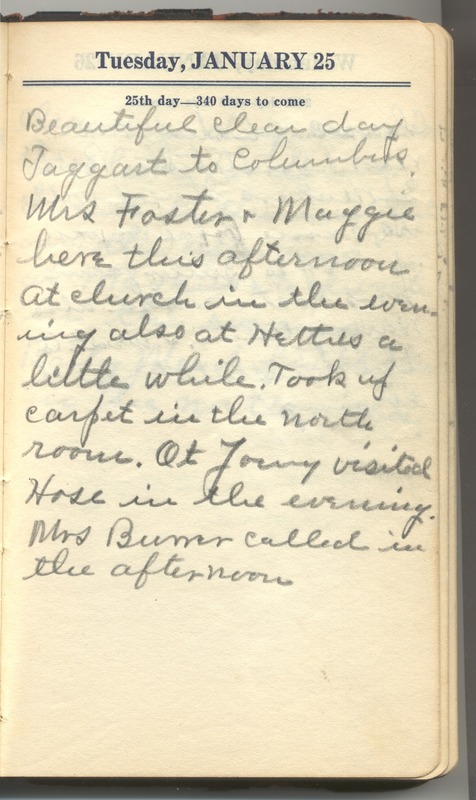 Tuesday, JANUARY 25
25th day—340 days to come
Beautiful clear day
Taggart to Columbus.
Mrs Foster & Maggie
here this afternoon
at church in the even-
ing also at Hetties a
little while. Took up
carpet in the north
room. visited
Hose in the evening.
Mrs Burrer called in
the afternoon